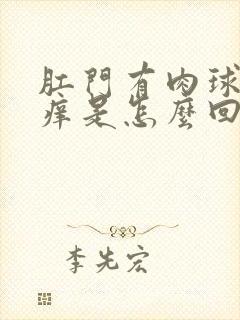 肛門有肉球
痒是怎麼回
李先宏